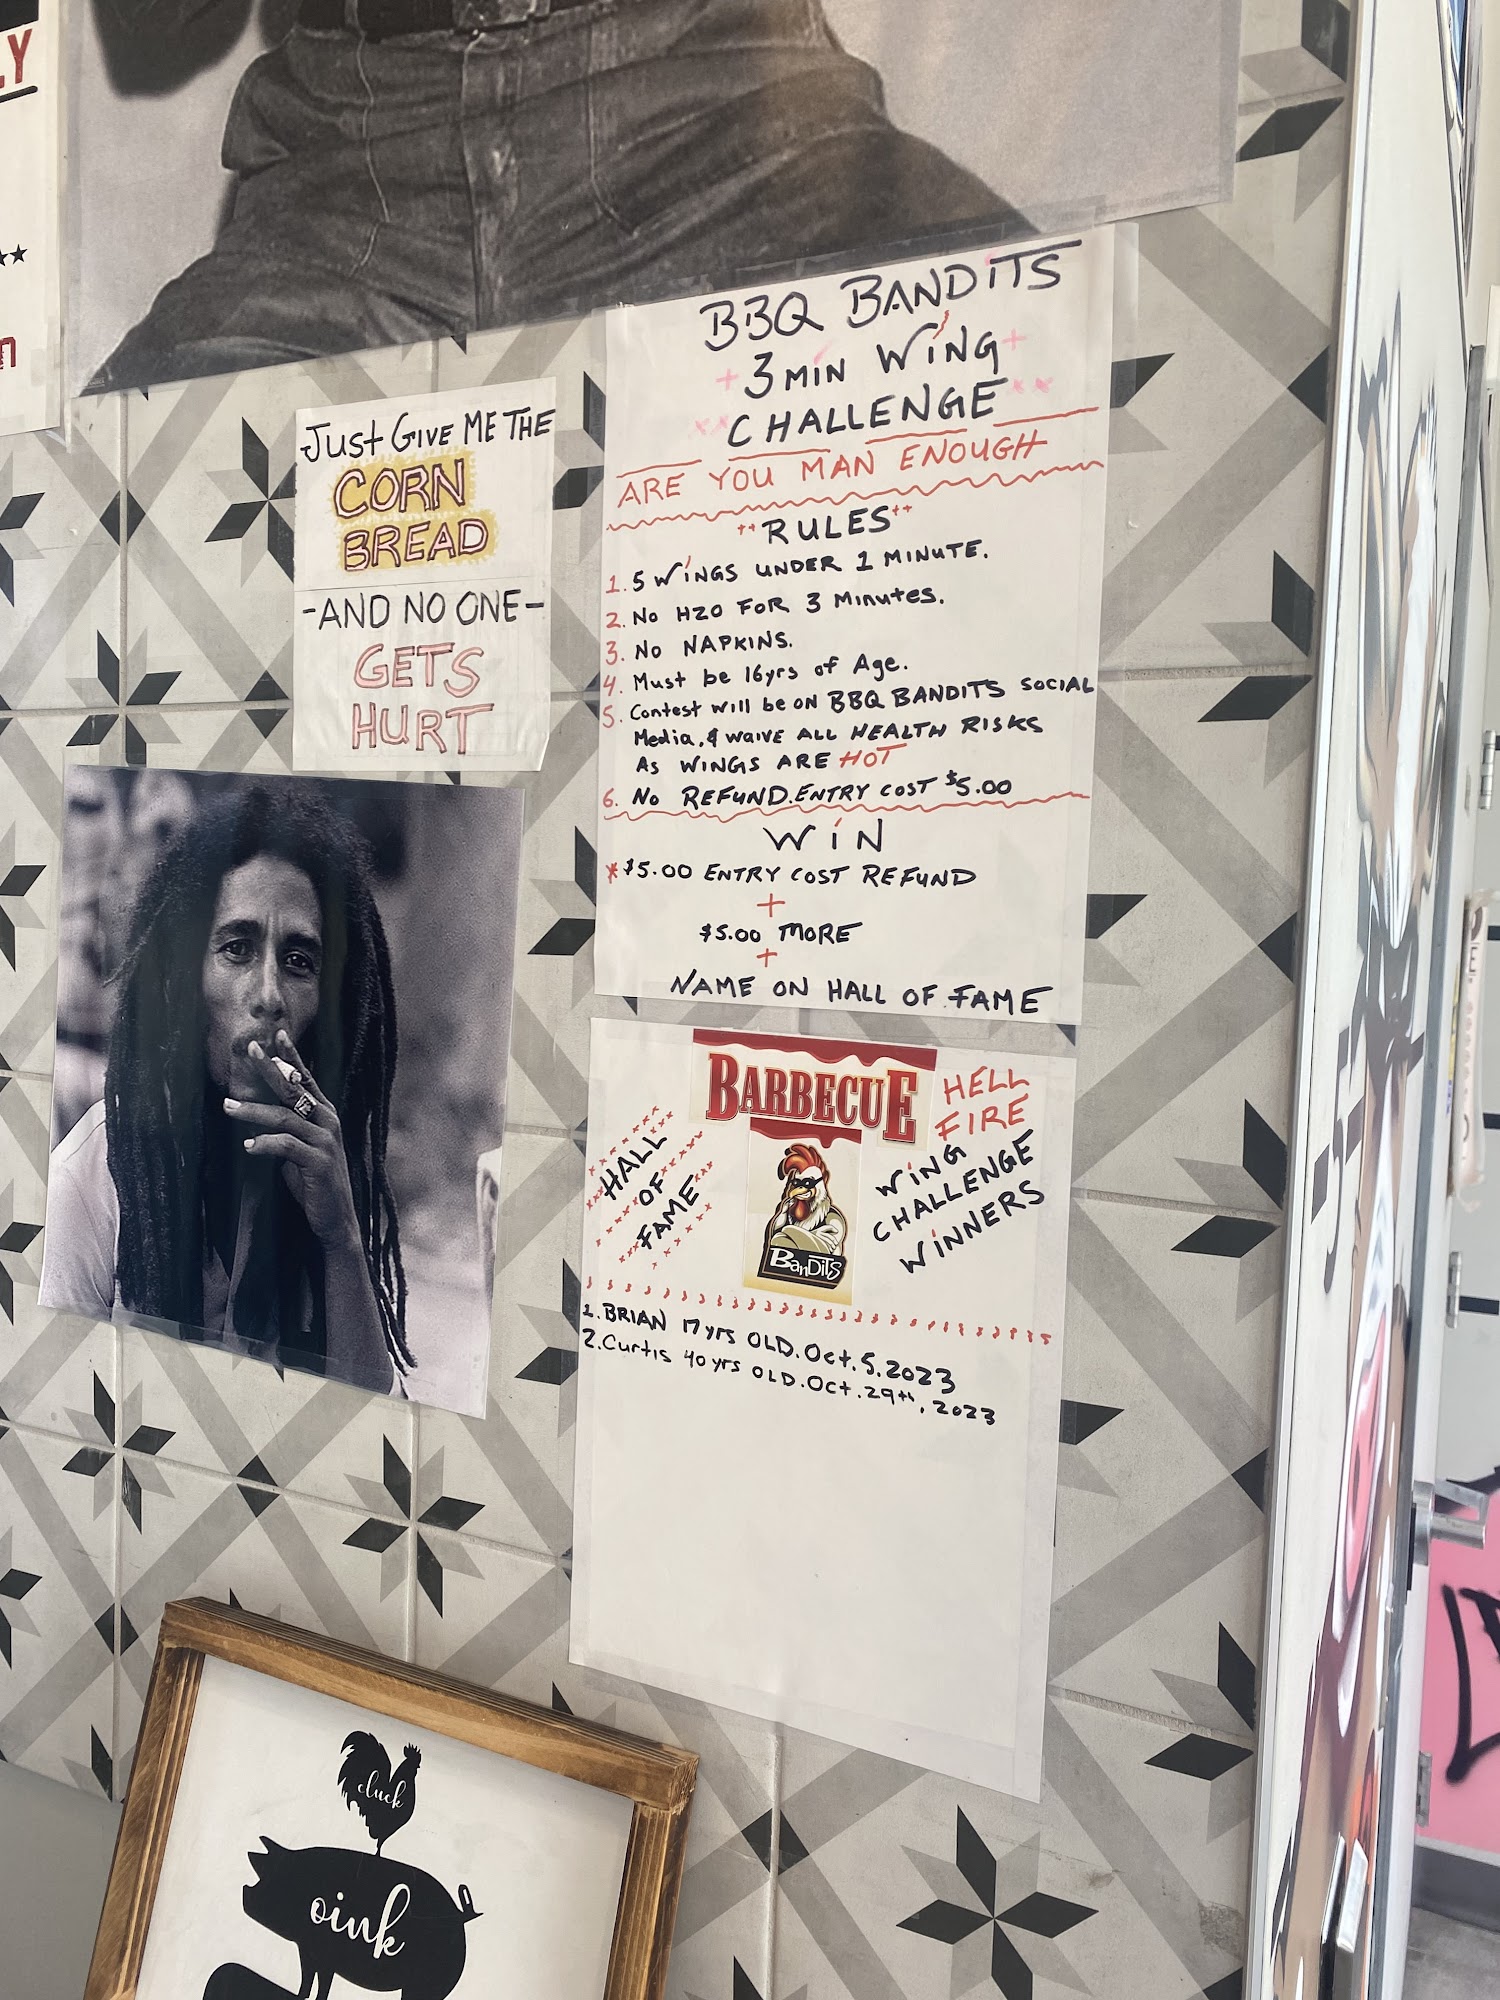 LY
JUST GIVE ME THE
CORN
BREAD
-AND NO ONE-
GETS
HURT
BBQ BANDiTS
3 MiN WiNG
CHALLENGE
ARE YOU MAN ENOUGH
RULES
1. 5 WiNGS UNDER 1 MINUTE.
2. No H2O FOR 3 Minutes.
3. No NAPKINS.
4. Must be 16yrs of Age.
5. Contest will be on BBQ BANDITS SOCIAL
Media, & WAIVE ALL HEALTH RISKS
AS WINGS ARE HOT
6. No REFUND. ENTRY COST $5.00
WiN
*$5.00 ENTRY COST REFUND
+
$5.00 MORE
+
NAME ON HALL OF FAME
BARBECUE
BanDiTS
HALL
OF
FAME
HELL
FIRE
WiNG
CHALLENGE
WiNNERS
1. BRIAN 17 yrs OLD. Oct. 5. 2023
2. Curtis 40 yrs OLD. Oct. 29th, 2023
cluck
oink